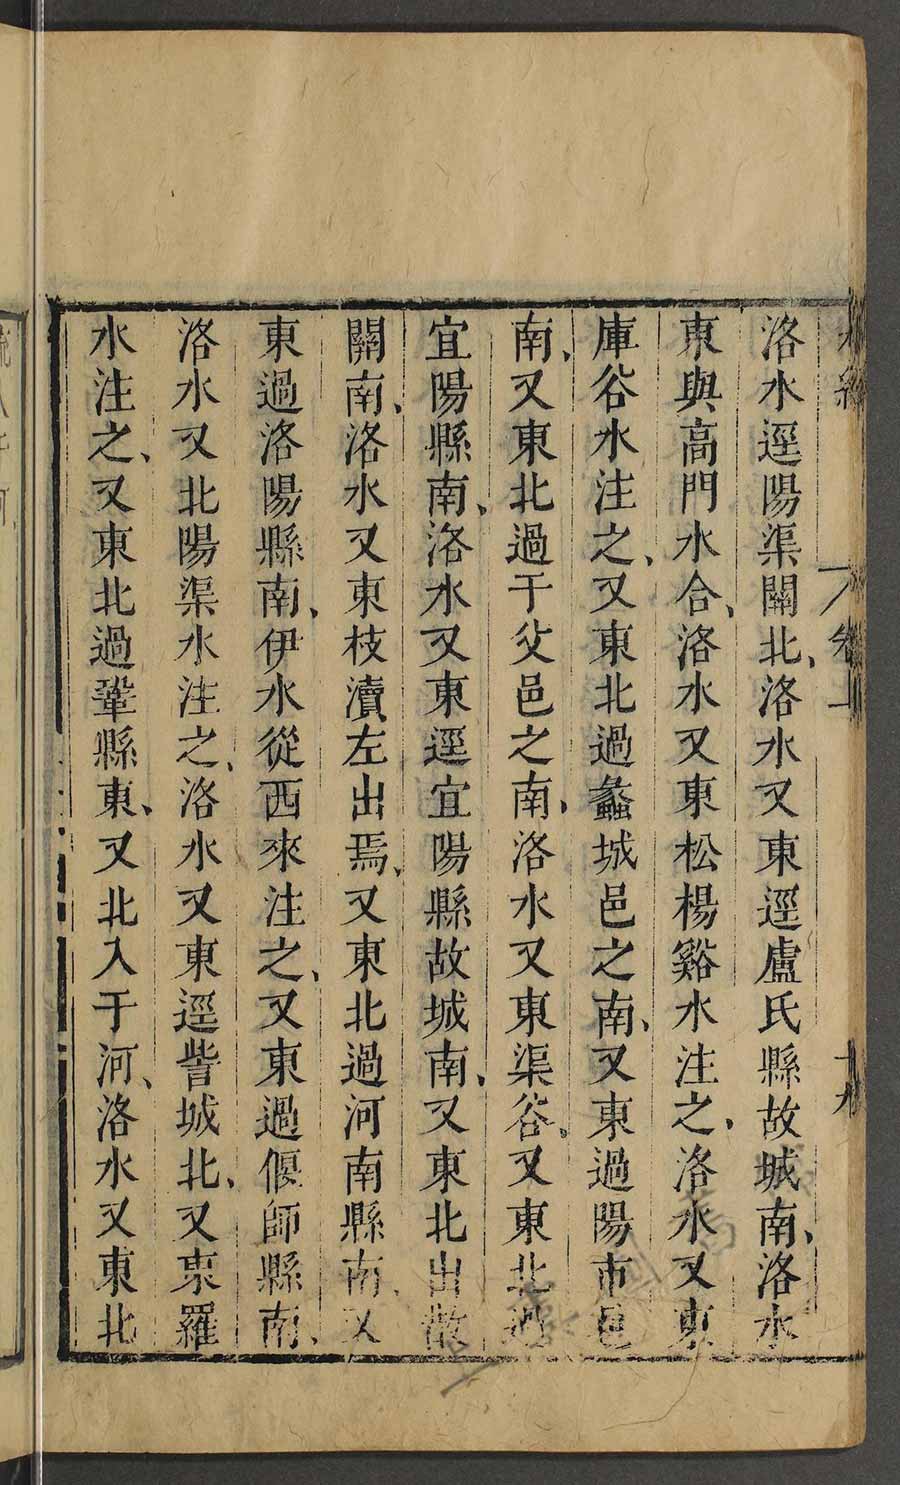 水經 卷上 十九
洛水逕陽渠關北、洛水又東逕盧氏縣故城南、洛水
東與高門水合、洛水又東松楊谿水注之、洛水又東
庫谷水注之、又東北過蠡城邑之南、又東過陽市邑
南、又東北過于父邑之南、洛水又東渠谷、又東北過
宜陽縣南、洛水又東逕宜陽縣故城南、又東北出散
關南、洛水又東枝瀆左出焉、又東北過河南縣南、又
東過洛陽縣南、伊水從西來注之、又東過偃師縣南、
洛水又北陽渠水注之、洛水又東逕訾城北、又東羅
水注之、又東北過鞏縣東、又北入于河、洛水又東北